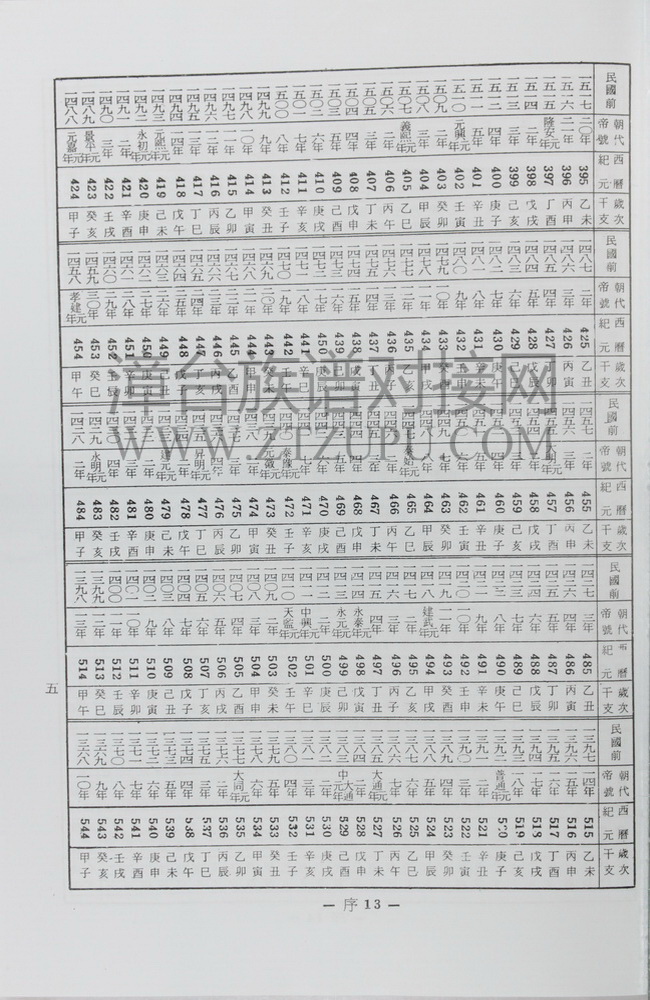 民國前 一五一七 一五一六 一五一五 一五一四 一五一三 一五一二 一五一一 一五一〇 一五〇九 一五〇八 一五〇七 一五〇六 一五〇五 一五〇四 一五〇三 一五〇二 一五〇一 一五〇〇 一四九九 一四九八 一四九七 一四九六 一四九五 一四九四 一四九三 一四九二 一四九一 一四九〇 一四八九 一四八八
朝代帝號 二〇年 二一年 隆安元年 二年 三年 四年 五年 元興元年 二年 三年 義熙元年 二年 三年 四年 五年 六年 七年 八年 九年 一〇年 一一年 一二年 一三年 一四年 元熙元年 永初元年 二年 三年 景平元年 元嘉元年
西曆紀元 395 396 397 398 399 400 401 402 403 404 405 406 407 408 409 410 411 412 413 414 415 416 417 418 419 420 421 422 423 424
歲次干支 乙未 丙申 丁酉 戊戌 己亥 庚子 辛丑 壬寅 癸卯 甲辰 乙巳 丙午 丁未 戊申 己酉 庚戌 辛亥 壬子 癸丑 甲寅 乙卯 丙辰 丁巳 戊午 己未 庚申 辛酉 壬戌 癸亥 甲子
民國前 一四八七 一四八六 一四八五 一四八四 一四八三 一四八二 一四八一 一四八〇 一四七九 一四七八 一四七七 一四七六 一四七五 一四七四 一四七三 一四七二 一四七一 一四七〇 一四六九 一四六八 一四六七 一四六六 一四六五 一四六四 一四六三 一四六二 一四六一 一四六〇 一四五九 一四五八
朝代帝號 二年 三年 四年 五年 六年 七年 八年 九年 一〇年 一一年 一二年 一三年 一四年 一五年 一六年 一七年 一八年 一九年 二〇年 二一年 二二年 二三年 二四年 二五年 二六年 二七年 二八年 二九年 三〇年 孝建元年
西曆紀元 425 426 427 428 429 430 431 432 433 434 435 436 437 438 439 440 441 442 443 444 445 446 447 448 449 450 451 452 453 454
歲次干支 乙丑 丙寅 丁卯 戊辰 己巳 庚午 辛未 壬申 癸酉 甲戌 乙亥 丙子 丁丑 戊寅 己卯 庚辰 辛巳 壬午 癸未 甲申 乙酉 丙戌 丁亥 戊子 己丑 庚寅 辛卯 壬辰 癸巳 甲午
民國前 一四五七 一四五六 一四五五 一四五四 一四五三 一四五二 一四五一 一四五〇 一四四九 一四四八 一四四七 一四四六 一四四五 一四四四 一四四三 一四四二 一四四一 一四四〇 一四三九 一四三八 一四三七 一四三六 一四三五 一四三四 一四三三 一四三二 一四三一 一四三〇 一四二九 一四二八
朝代帝號 二年 三年 大明元年 二年 三年 四年 五年 六年 七年 八年 泰始元年 二年 三年 四年 五年 六年 七年 泰豫元年 元徽元年 二年 三年 四年 昇明元年 二年 建元元年 二年 三年 四年 永明元年 二年
西曆紀元 455 456 457 458 459 460 461 462 463 464 465 466 467 468 469 470 471 472 473 474 475 476 477 478 479 480 481 482 483 484
歲次干支 乙未 丙申 丁酉 戊戌 己亥 庚子 辛丑 壬寅 癸卯 甲辰 乙巳 丙午 丁未 戊申 己酉 庚戌 辛亥 壬子 癸丑 甲寅 乙卯 丙辰 丁巳 戊午 己未 庚申 辛酉 壬戌 癸亥 甲子
民國前 一四二七 一四二六 一四二五 一四二四 一四二三 一四二二 一四二一 一四二〇 一四一九 一四一八 一四一七 一四一六 一四一五 一四一四 一四一三 一四一二 一四一一 一四一〇 一四〇九 一四〇八 一四〇七 一四〇六 一四〇五 一四〇四 一四〇三 一四〇二 一四〇一 一四〇〇 一三九九 一三九八
朝代帝號 三年 四年 五年 六年 七年 八年 九年 一〇年 一一年 建武元年 二年 三年 四年 永泰元年 永元元年 二年 中興元年 天監元年 二年 三年 四年 五年 六年 七年 八年 九年 一〇年 一一年 一二年 一三年
西曆紀元 485 486 487 488 489 490 491 492 493 494 495 496 497 498 499 500 501 502 503 504 505 506 507 508 509 510 511 512 513 514
歲次干支 乙丑 丙寅 丁卯 戊辰 己巳 庚午 辛未 壬申 癸酉 甲戌 乙亥 丙子 丁丑 戊寅 己卯 庚辰 辛巳 壬午 癸未 甲申 乙酉 丙戌 丁亥 戊子 己丑 庚寅 辛卯 壬辰 癸巳 甲午
民國前 一三九七 一三九六 一三九五 一三九四 一三九三 一三九二 一三九一 一三九〇 一三八九 一三八八 一三八七 一三八六 一三八五 一三八四 一三八三 一三八二 一三八一 一三八〇 一三七九 一三七八 一三七七 一三七六 一三七五 一三七四 一三七三 一三七二 一三七一 一三七〇 一三六九 一三六八
朝代帝號 一四年 一五年 一六年 一七年 一八年 普通元年 二年 三年 四年 五年 六年 七年 大通元年 二年 中大通元年 二年 三年 四年 五年 六年 大同元年 二年 三年 四年 五年 六年 七年 八年 九年 一〇年
西曆紀元 515 516 517 518 519 520 521 522 523 524 525 526 527 528 529 530 531 532 533 534 535 536 537 538 539 540 541 542 543 544
歲次干支 乙未 丙申 丁酉 戊戌 己亥 庚子 辛丑 壬寅 癸卯 甲辰 乙巳 丙午 丁未 戊申 己酉 庚戌 辛亥 壬子 癸丑 甲寅 乙卯 丙辰 丁巳 戊午 己未 庚申 辛酉 壬戌 癸亥 甲子
五
— 序 13 —
洋台族谱对接网
WWW.ZTZUPU.COM